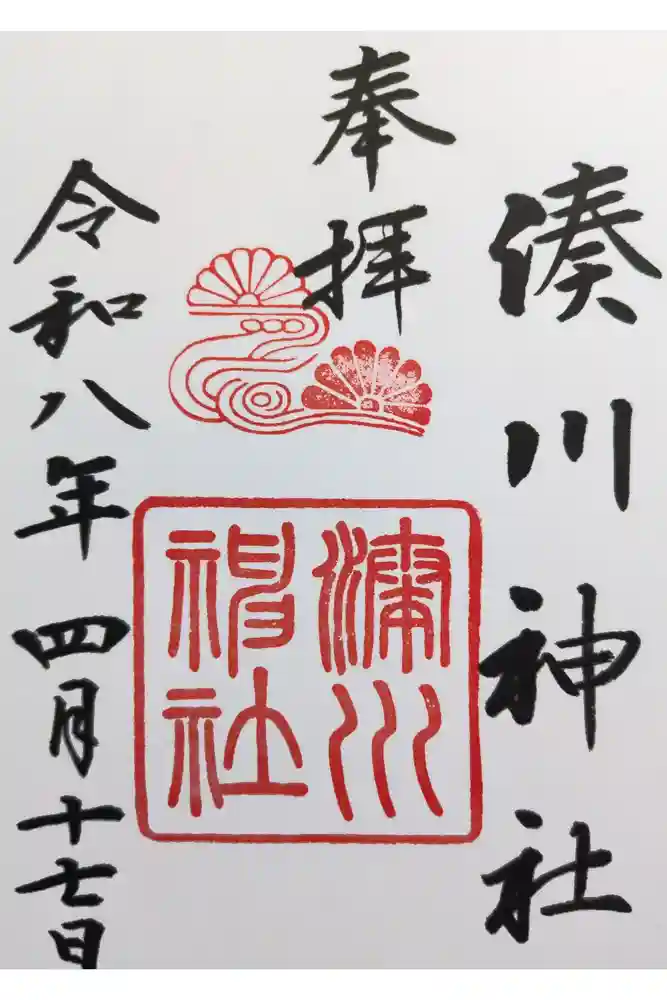 湊川神社
奉拝
湊川
神社
令和八年四月十七日